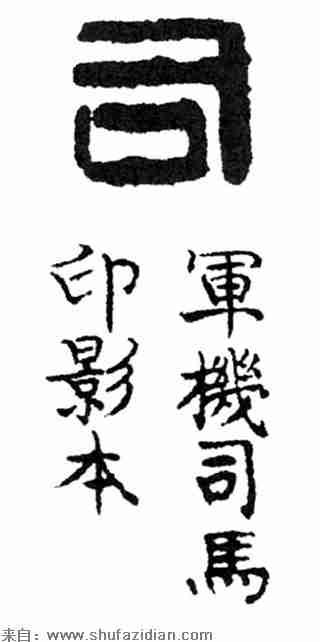 司
軍機司馬
印影本
来自：www.shufazidian.com